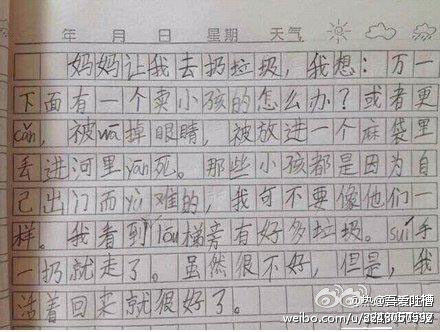 年 月 日 星期 天气
妈妈让我去扔垃圾,我想:万一
下面有一个卖小孩的怎么办?或者更
cǎn,被wā掉眼睛,被放进一个麻袋里
丢进河里yān死。那些小孩都是因为自
己出门而yù难的,我可不要像他们一
样。我看到lóu梯旁有好多垃圾。suí手
一扔就走了。虽然很不好,但是,我
活着回来就很好了。
@吾爱吐槽
weibo.com/u/